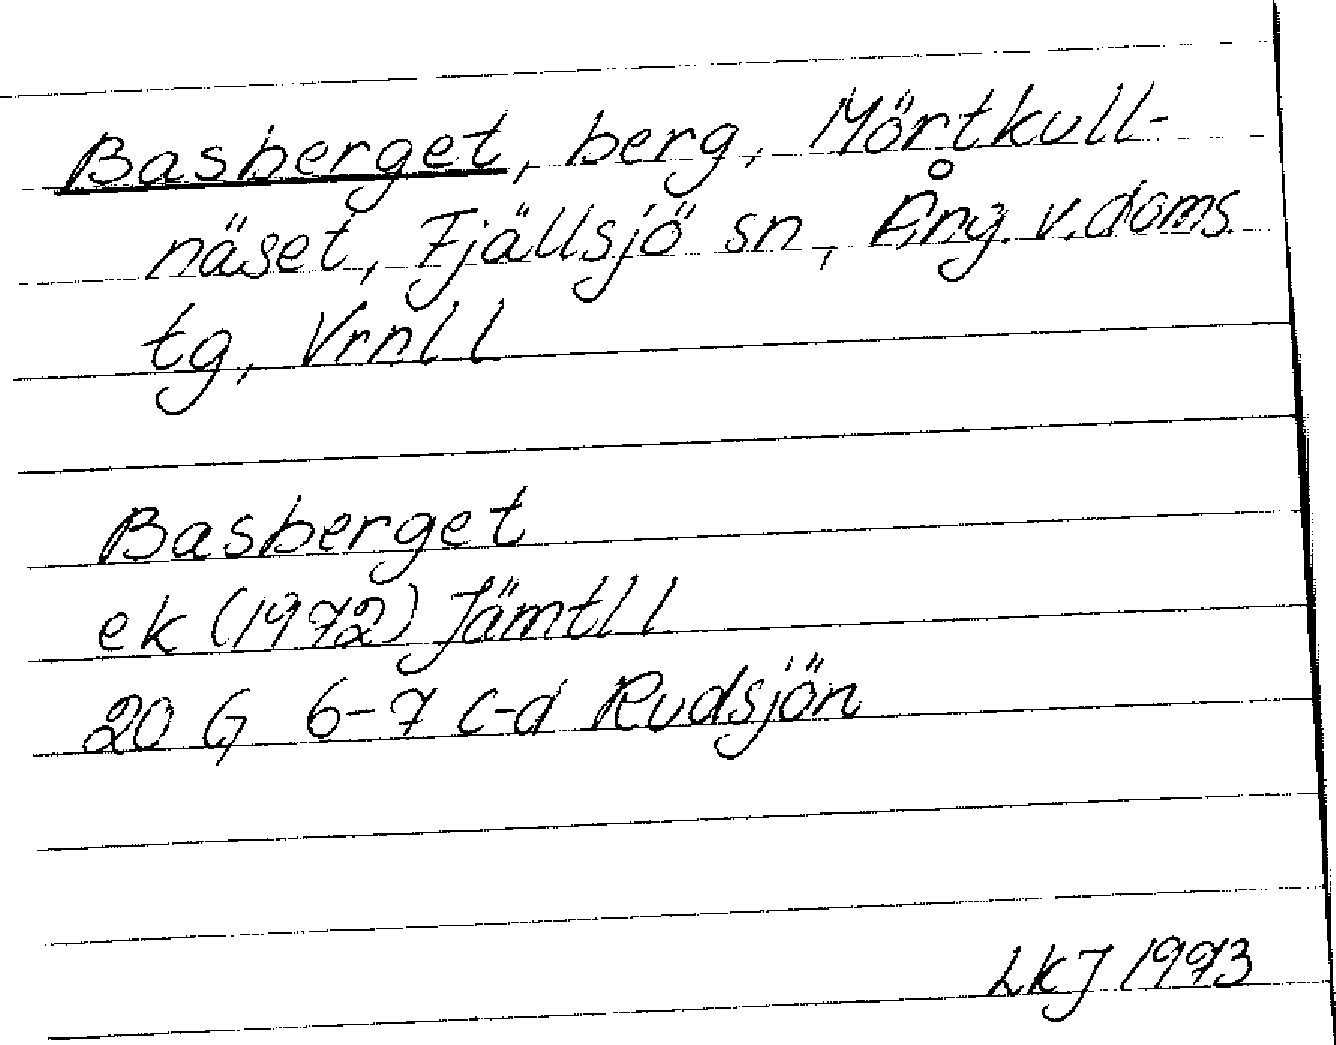 Basberget, berg, Mörtkull-
näset, Fjällsjö sn, Ång. v. doms
tg, Vrnl l
Basberget
ek (1972) Jämtl l
20 G 6-7 c-d Rudsjön
LKJ 1973